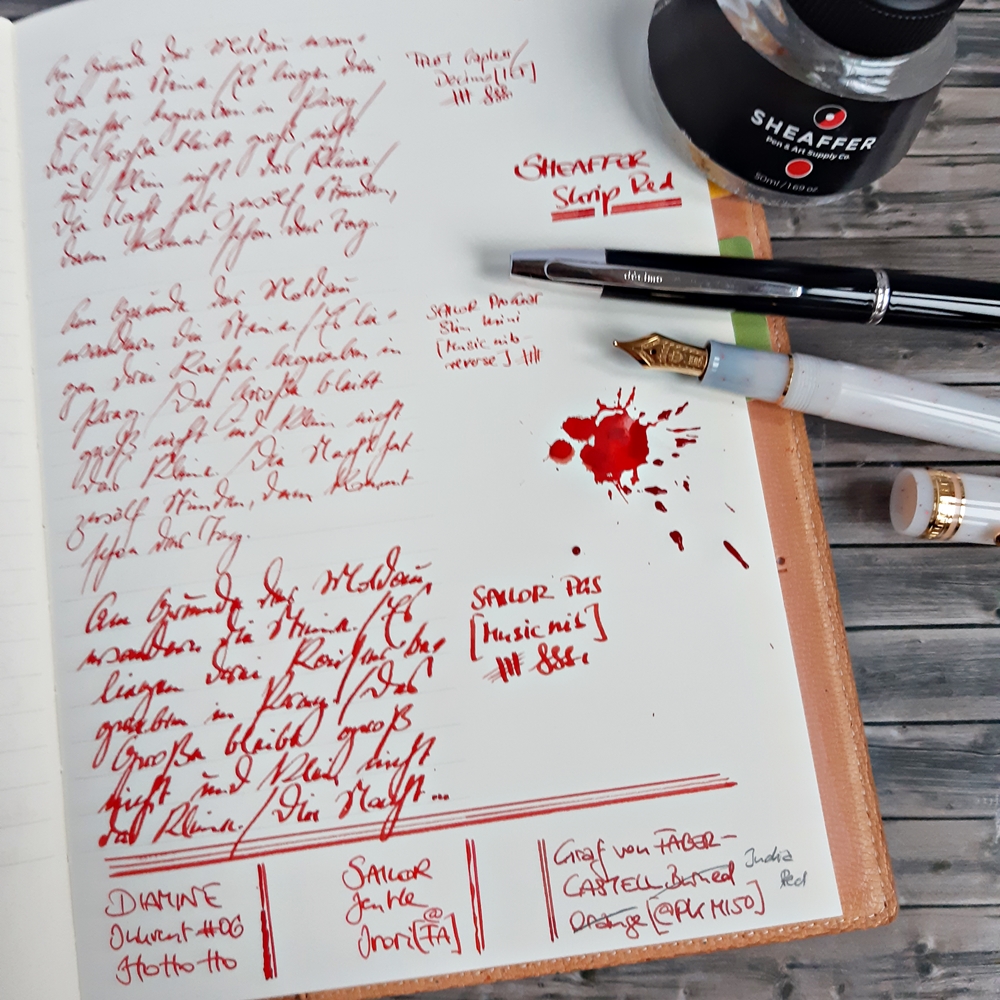 Am Grunde der Moldau wan-
dern die Steine / Es liegen drei
Kaiser begraben in Prag /
Das Große bleibt groß nicht
und klein nicht das Kleine /
Die Nacht hat zwölf Stunden,
dann kommt schon der Tag.
PILOT Capless/
Décimo
SHEAFFER
Skrip Red
Am Grunde der Moldau
wandern die Steine / Es lie-
gen drei Kaiser begraben in
Prag. / Das Große bleibt
groß nicht und klein nicht
das Kleine. / Die Nacht hat
zwölf Stunden, dann kommt
schon der Tag.
SAILOR ProGear
Slim Mini
[Music nib
reverse]
Am Grunde der Moldau
wandern die Steine. / Es
liegen drei Kaiser be-
graben in Prag. / Das
Große bleibt groß
nicht und klein nicht
das Kleine. / Die Nacht...
SAILOR PGS
[Music nib]
DIAMINE
Inkvent #06
Ho Ho Ho
SAILOR
Jentle
@
Irori [FA]
Graf von FABER-
CASTELL Burned India
Orange [@PK M150] Red
SHEAFFER
Pen & Art Supply Co.
50ml / 1.69 oz
décimo